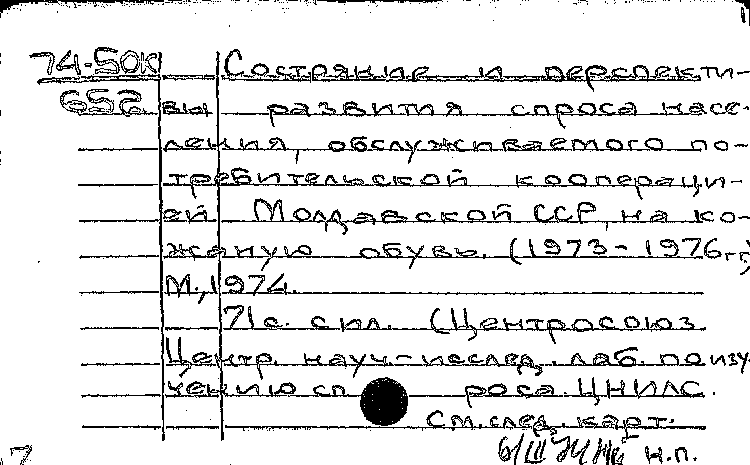 74-50К Состояние и перспекти-
652 вы развития спроса насе-
ления, обслуживаемого по-
требительской кооперaци-
ей Молдавской ССР, на ко-
жаную обувь. (1973-1976гг)
М., 1974.
71с. с ил. (Центросоюз
Центр. науч.-исслед. лаб. по изу
чению сп роса. ЦНИЛС.
См. след. карт.
н.п.